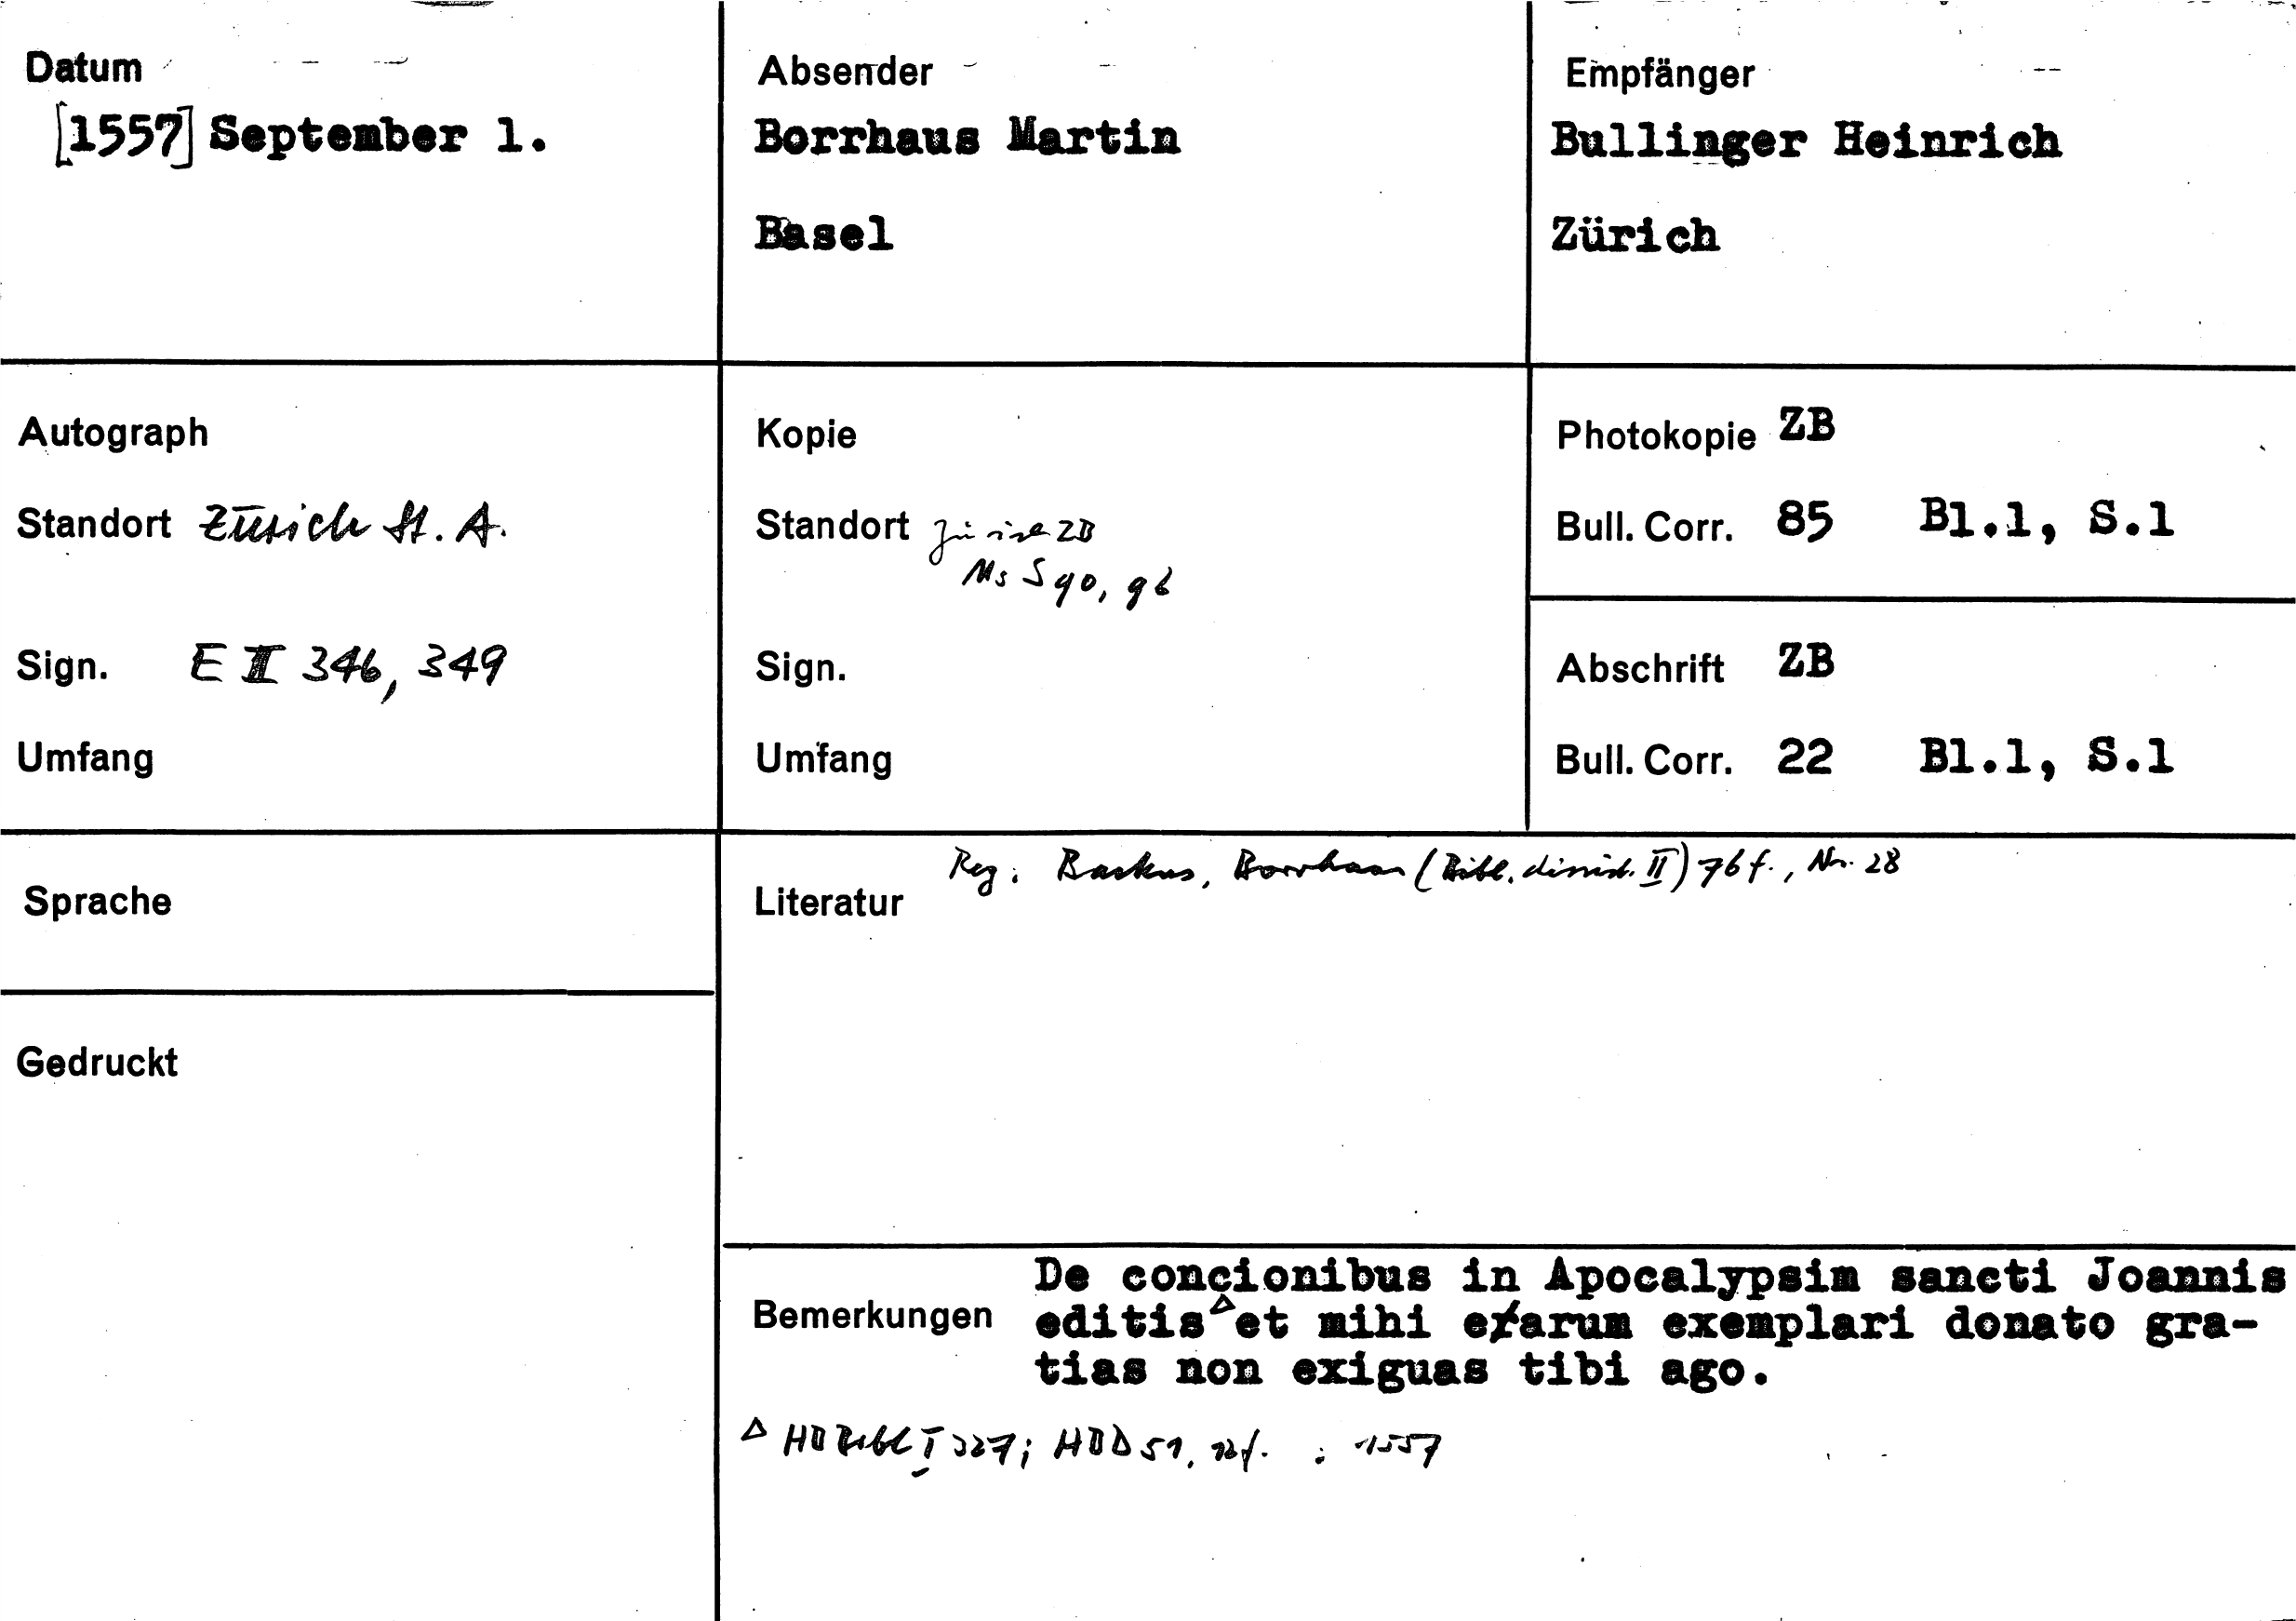 Datum
[1557] September 1.
Absender
Borrhaus Martin
Basel
Empfänger
Bullinger Heinrich
Zürich
Autograph
Standort Zürich St. A.
Sign. E II 346, 349
Umfang
Kopie
Standort Zürich ZB
Ms S 90, 96
Sign.
Umfang
Photokopie ZB
Bull. Corr. 85 Bl.1, S.1
Abschrift ZB
Bull. Corr. 22 Bl.1, S.1
Sprache
Gedruckt
Literatur
Reg: Backus, Borrhaus (Bibl. dissid. II) 76 f., Nr. 28
Bemerkungen
De concionibus in Apocalypsim sancti Joannis
editis Δ et mihi earum exemplari donato gra-
tias non exiguas tibi ago.
Δ HBBibl I 327; HBD 51, f. : 1557